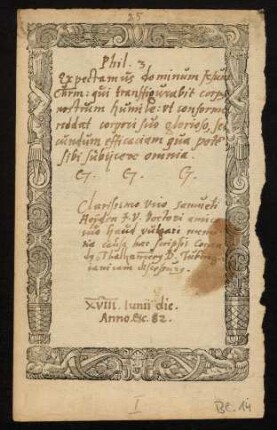 55
Phil. 3
Expectamus dominum Jesum
Chrm: qui transfigurabit corpus
nostrum humile: ut conforme
reddat corpori suo glorioso, se
cundum efficaciam qua potest
sibi subijcere omnia.
G. G. G.
Clarissimo viro Samueli
Heyden J. V. Doctori amico
suo haud vulgari memo
riæ causa hæc scripsi
Thalhamerg D. Tubing
discessurg.
XVIII. Iunii die.
Anno &c. 82.
I
Bl. 14